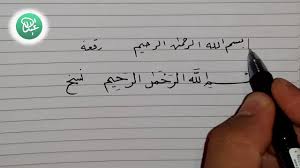 بسم الله الرحمن الرحيم رقعة
بسم اللّٰه الرحمن الرحيم نسخ